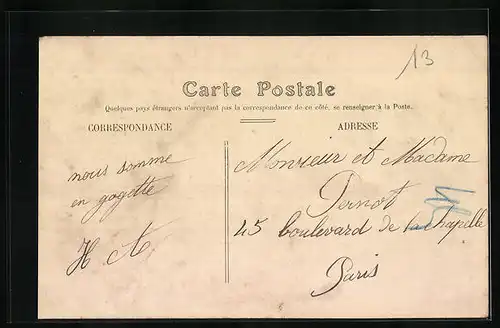 13
Carte Postale
Quelques pays étrangers n'acceptant pas la correspondance de ce côté, se renseigner à la Poste.
CORRESPONDANCE
ADRESSE
nous somme
en gogette
H A
Monsieur et Madame
Pernot
45 boulevard de la Chapelle
Paris